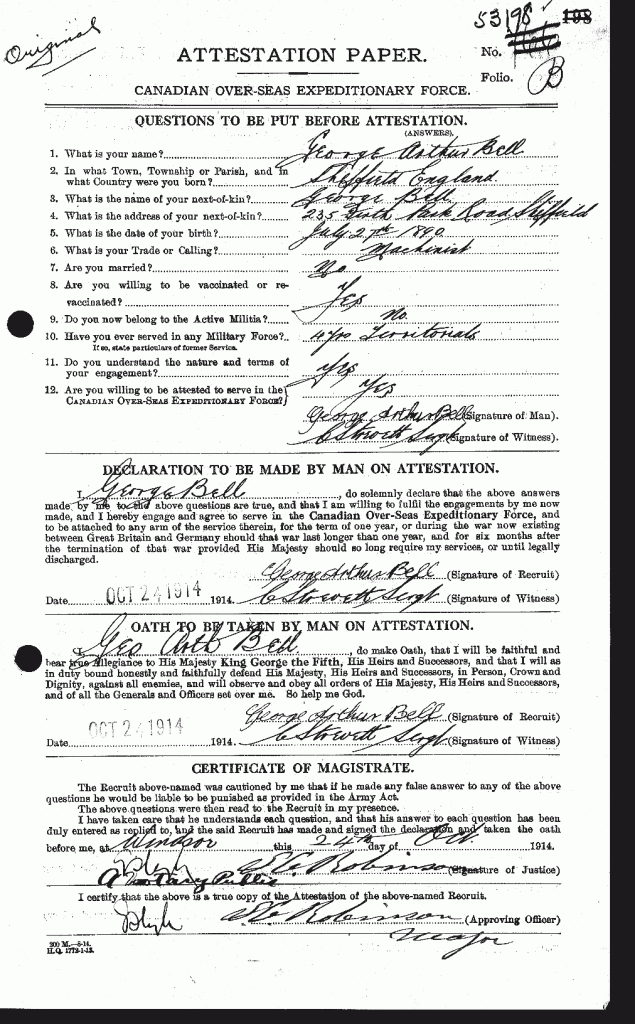 Original
53198 198
No.
Folio. B
ATTESTATION PAPER.
CANADIAN OVER-SEAS EXPEDITIONARY FORCE.
QUESTIONS TO BE PUT BEFORE ATTESTATION.
(ANSWERS).
1. What is your name? George Arthur Bell
2. In what Town, Township or Parish, and in
what Country were you born? Sheffield England
3. What is the name of your next-of-kin? George Bell
4. What is the address of your next-of-kin? 235 Firth Park Road Sheffield
5. What is the date of your birth? July 27th 1890
6. What is your Trade or Calling? Machinist
7. Are you married? No
8. Are you willing to be vaccinated or re-
vaccinated? Yes
9. Do you now belong to the Active Militia? No.
10. Have you ever served in any Military Force? 4 yrs Territorials
If so, state particulars of former Service.
11. Do you understand the nature and terms of
your engagement? Yes
12. Are you willing to be attested to serve in the
CANADIAN OVER-SEAS EXPEDITIONARY FORCE? Yes
George Arthur Bell (Signature of Man).
Sergt (Signature of Witness).
DECLARATION TO BE MADE BY MAN ON ATTESTATION.
I, George Bell, do solemnly declare that the above answers
made by me to the above questions are true, and that I am willing to fulfil the engagements by me now
made, and I hereby engage and agree to serve in the Canadian Over-Seas Expeditionary Force, and
to be attached to any arm of the service therein, for the term of one year, or during the war now existing
between Great Britain and Germany should that war last longer than one year, and for six months after
the termination of that war provided His Majesty should so long require my services, or until legally
discharged.
George Arthur Bell (Signature of Recruit)
Date OCT 24 1914 1914. Sergt (Signature of Witness)
OATH TO BE TAKEN BY MAN ON ATTESTATION.
I, Geo Arth Bell, do make Oath, that I will be faithful and
bear true Allegiance to His Majesty King George the Fifth, His Heirs and Successors, and that I will as
in duty bound honestly and faithfully defend His Majesty, His Heirs and Successors, in Person, Crown and
Dignity, against all enemies, and will observe and obey all orders of His Majesty, His Heirs and Successors,
and of all the Generals and Officers set over me. So help me God.
George Arthur Bell (Signature of Recruit)
Date OCT 24 1914 1914. Sergt (Signature of Witness)
CERTIFICATE OF MAGISTRATE.
The Recruit above-named was cautioned by me that if he made any false answer to any of the above
questions he would be liable to be punished as provided in the Army Act.
The above questions were then read to the Recruit in my presence.
I have taken care that he understands each question, and that his answer to each question has been
duly entered as replied to, and the said Recruit has made and signed the declaration and taken the oath
before me, at Windsor this 24th day of Oct. 1914.
Robinson (Signature of Justice)
A Notary Public
I certify that the above is a true copy of the Attestation of the above-named Recruit.
Robinson (Approving Officer)
Major
200 M.—8-14.
H.Q. 1772-1-13.